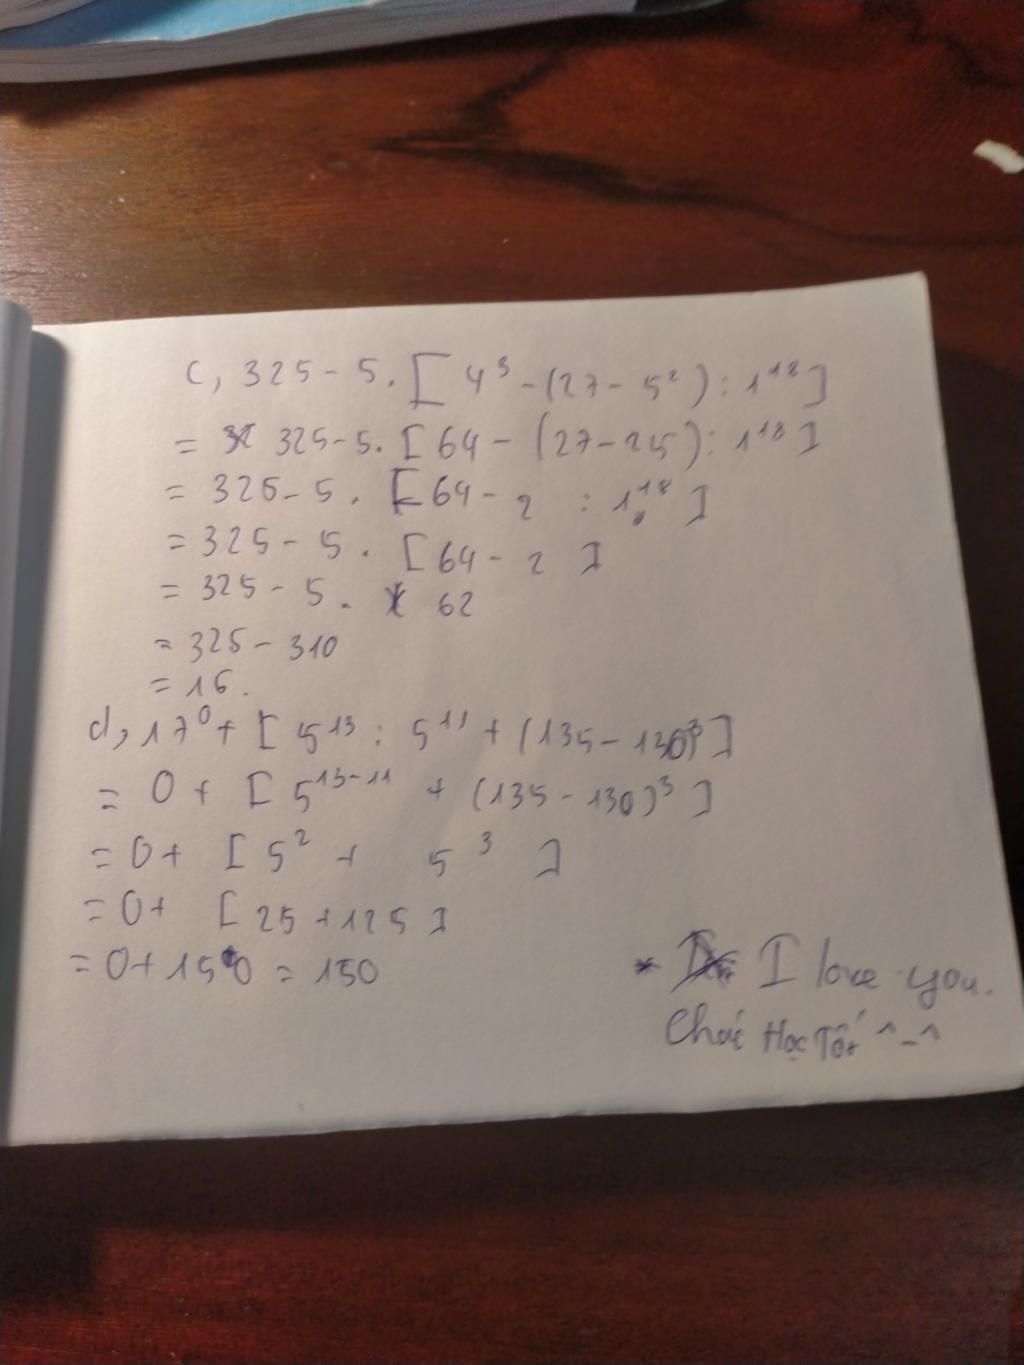 c, 325 - 5 . [ 4³ - (27 - 5²) : 1¹⁸ ]
= 325 - 5 . [ 64 - (27 - 25) : 1¹⁸ ]
= 325 - 5 . [ 64 - 2 : 1¹⁸ ]
= 325 - 5 . [ 64 - 2 ]
= 325 - 5 . 62
= 325 - 310
= 15.
d, 17⁰ + [ 5¹³ : 5¹¹ + (135 - 130)³ ]
= 0 + [ 5¹³⁻¹¹ + (135 - 130)³ ]
= 0 + [ 5² + 5³ ]
= 0 + [ 25 + 125 ]
= 0 + 150 = 150
* I love you.
Chúc Học Tốt ^-^